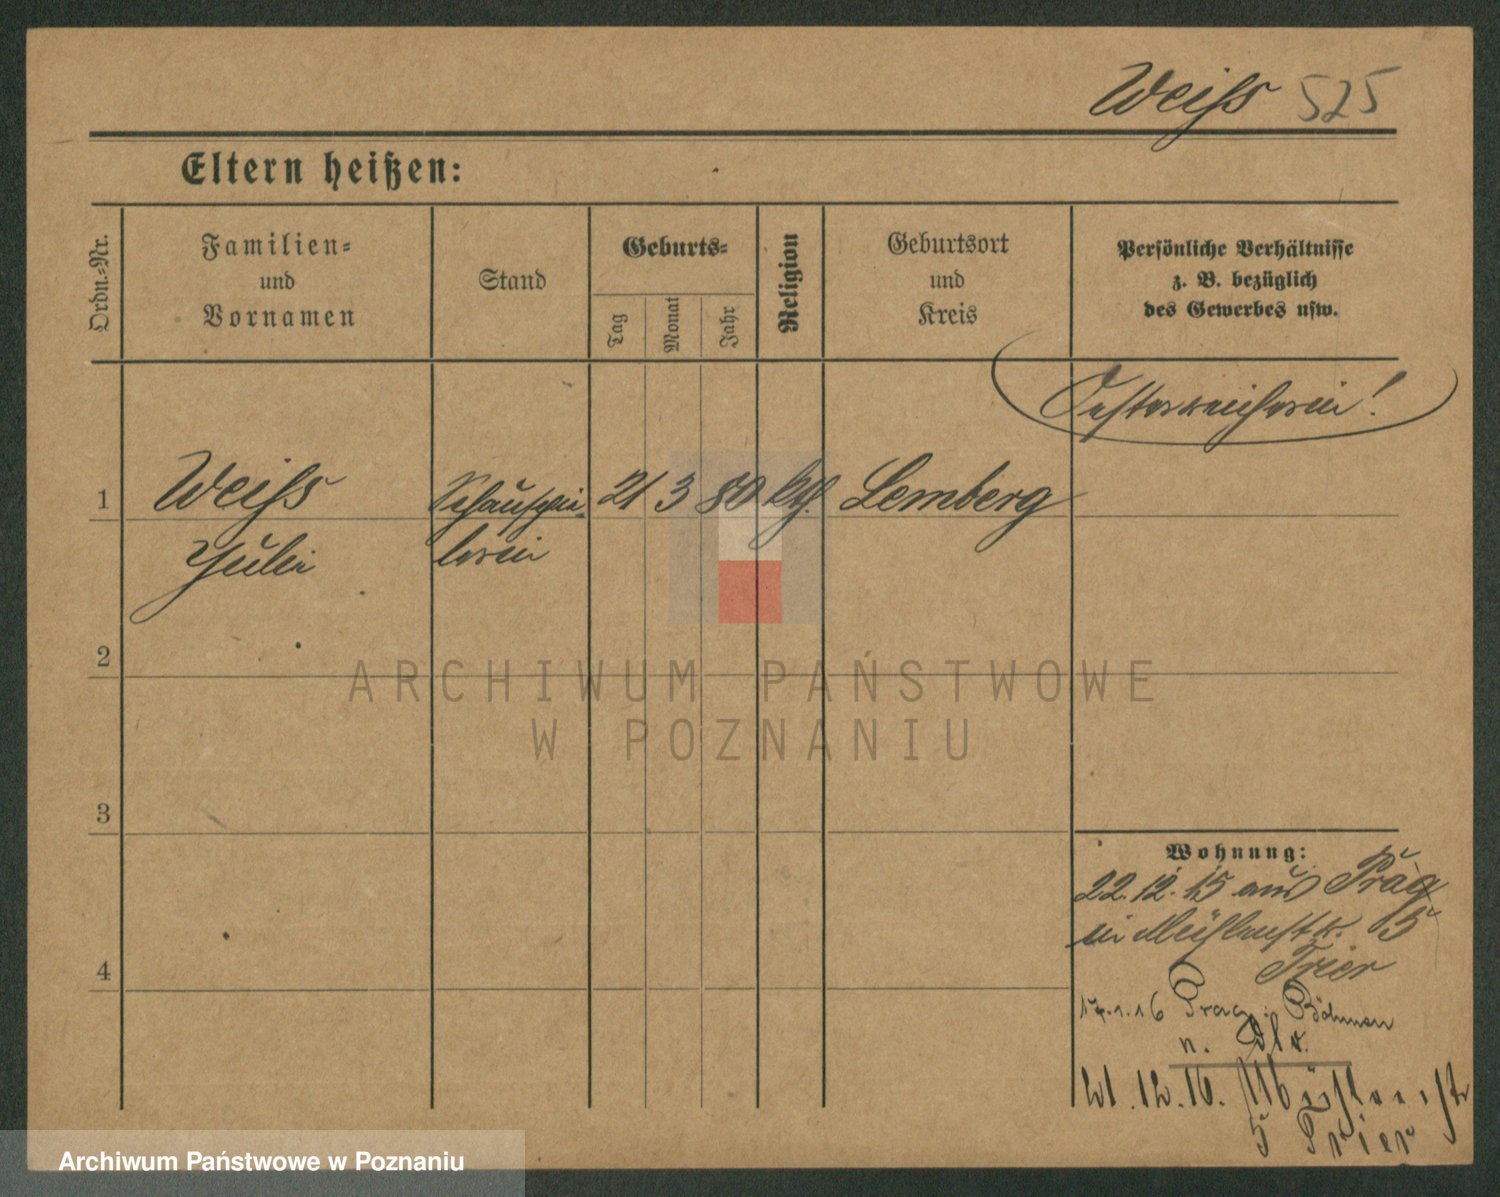 Weiss 525
Eltern heißen:
Ordn.=Nr.
Familien=
und
Vornamen
Stand
Geburts=
Tag
Monat
Jahr
Religion
Geburtsort
und
Kreis
Persönliche Verhältnisse
z. B. bezüglich
des Gewerbes usw.
Oesterreicherin!
1
Weiss
Schauspie-
21
3
80
kth.
Lemberg
lerin
2
ARCHIWUM PAŃSTWOWE
W POZNANIU
3
4
Wohnung:
22.12.15 aus Prag
Mühlenstr. 5
Trier
17.1.16 Prag i. Böhmen
21.12.16. Mühlenstr
5 Trier
Archiwum Państwowe w Poznaniu